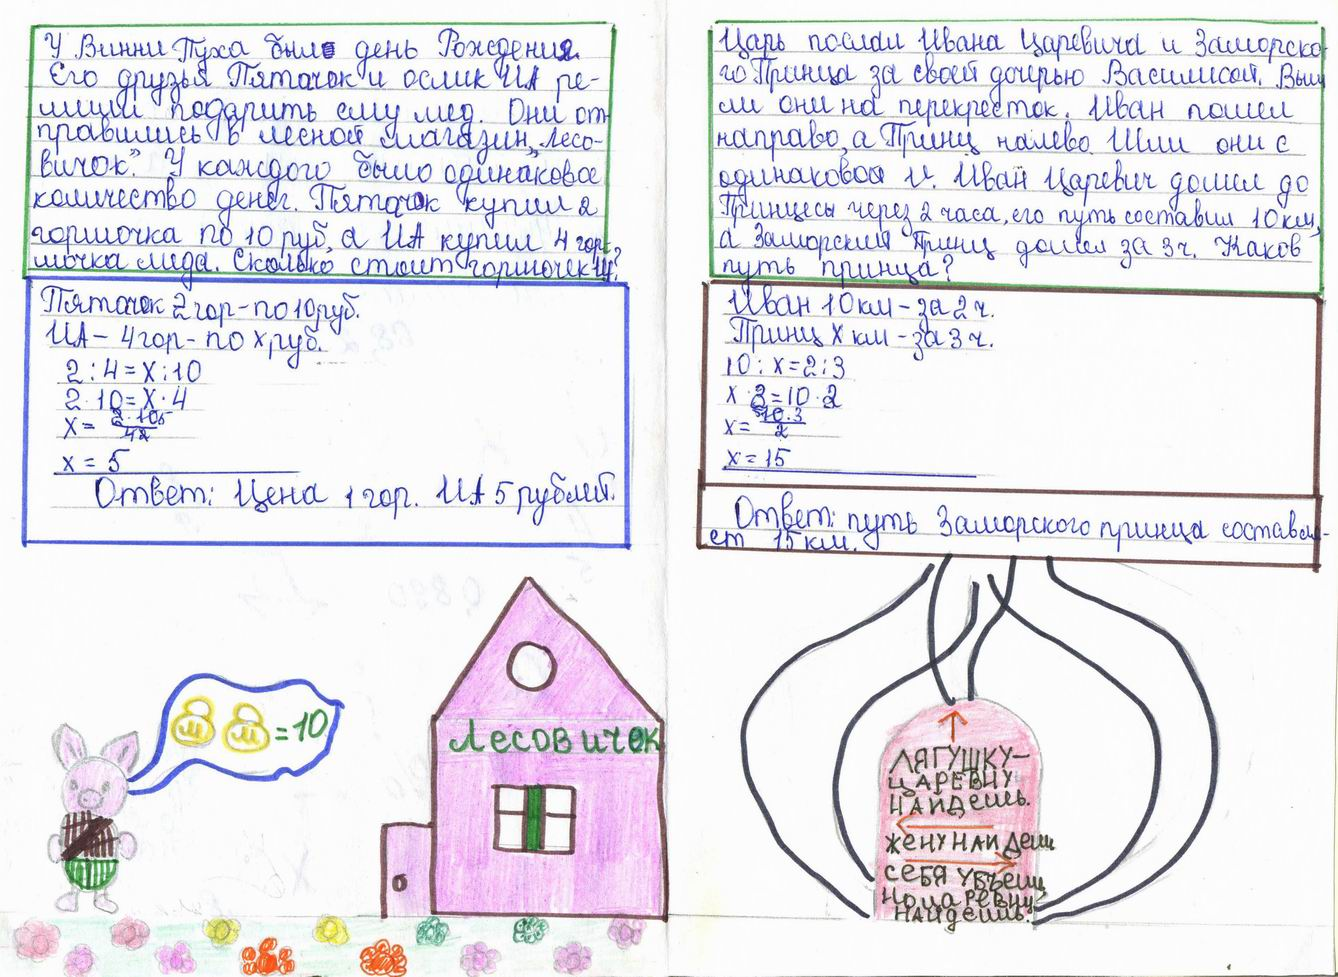 У Винни Пуха было день Рождения.
Его друзья Пяточок и ослик ИА ре-
шили подарить ему мед. Они от
правились в лесной магазин „Лесо-
вичок". У каждого было одинаковое
количество денег. Пяточок купил 2
горшочка по 10 руб, а ИА купил 4 гор-
шочка меда. Сколько стоит горшочек ИА?
Пяточок 2 гор - по 10 руб.
ИА - 4 гор - по х руб.
2 : 4 = х : 10
2 · 10 = х · 4
х = 2 · 10 5
4 2
х = 5
Ответ: Цена 1 гор. ИА 5 рублей.
= 10
Лесовичек
Царь послал Ивана Царевича и Заморско-
го Принца за своей дочерью Василисой. Выш
ли они на перекресток. Иван пошел
направо, а Принц налево. Шли они с
одинаковой v. Иван Царевич дошел до
Принцесы через 2 часа, его путь составил 10 км,
а Заморский Принц дошел за 3 ч. Каков
путь принца?
Иван 10 км - за 2 ч.
Принц х км - за 3 ч.
10 : х = 2 : 3
х · 2 = 10 · 2
х = 5 10 · 3
2
х = 15
Ответ: путь Заморского принца составля-
ет 15 км.
ЛЯГУШКУ-
ЦАРЕВНУ
НАЙДЕШЬ.
ЖЕНУ НАЙДЕШ
СЕБЯ УБЪЕШ,
НО ЦАРЕВНУ
НАЙДЕШЬ.